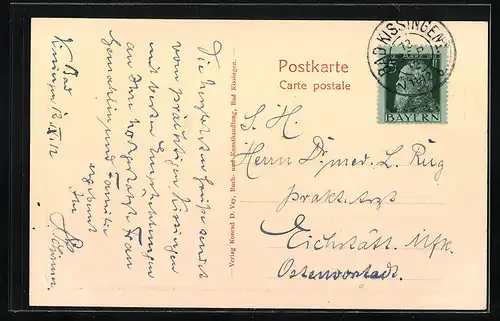 Bad
Kissingen 12. XI. 12
Die herzlichsten Grüße sendet
vom prächtigen Kissingen
mit besten Empfehlungen
an Ihre hochgeschätzte Frau
Gemahlin und Familie
ergebenst
Ihr
Verlag Konrad D. Vay, Buch- und Kunsthandlung, Bad Kissingen.
Postkarte
Carte postale
BAD KISSINGEN
BAYERN
S. H.
Herrn Dr. med. L. Rug
prakt. Arzt
Eichstätt Mfr.
Ostenvorstadt.